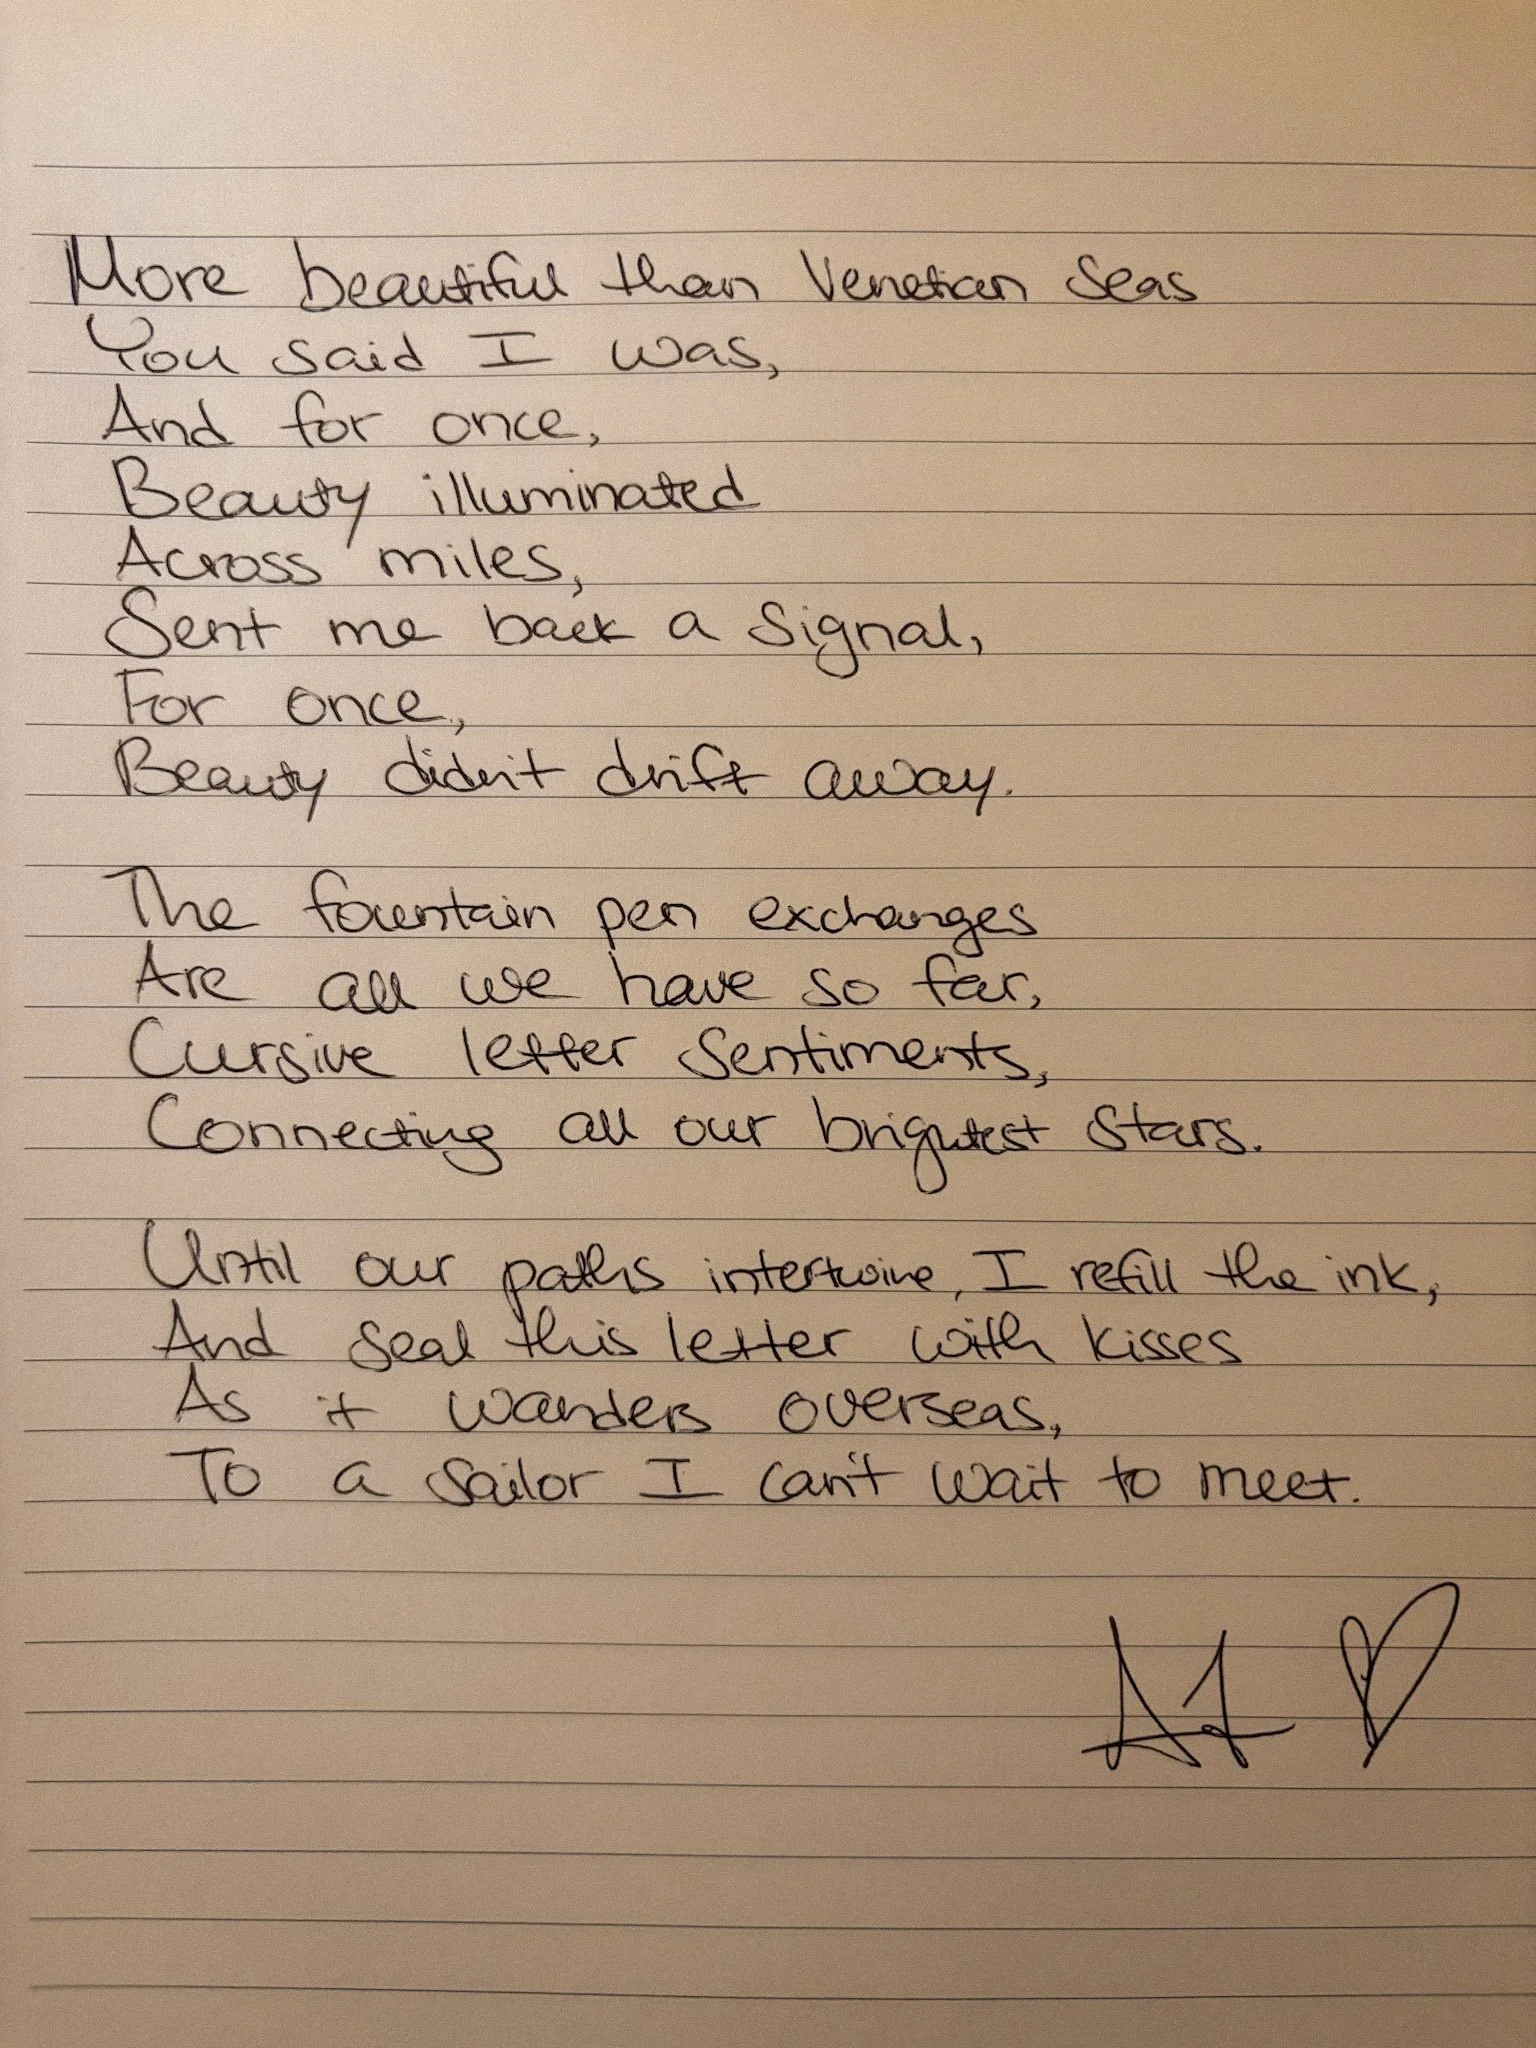 More beautiful than Venetian seas
You said I was,
And for once,
Beauty illuminated
Across miles,
Sent me back a signal,
For once,
Beauty didn't drift away.
The fountain pen exchanges
Are all we have so far,
Cursive letter sentiments,
Connecting all our brightest stars.
Until our paths intertwine, I refill the ink,
And seal this letter with kisses
As it wanders overseas,
To a sailor I can't wait to meet.